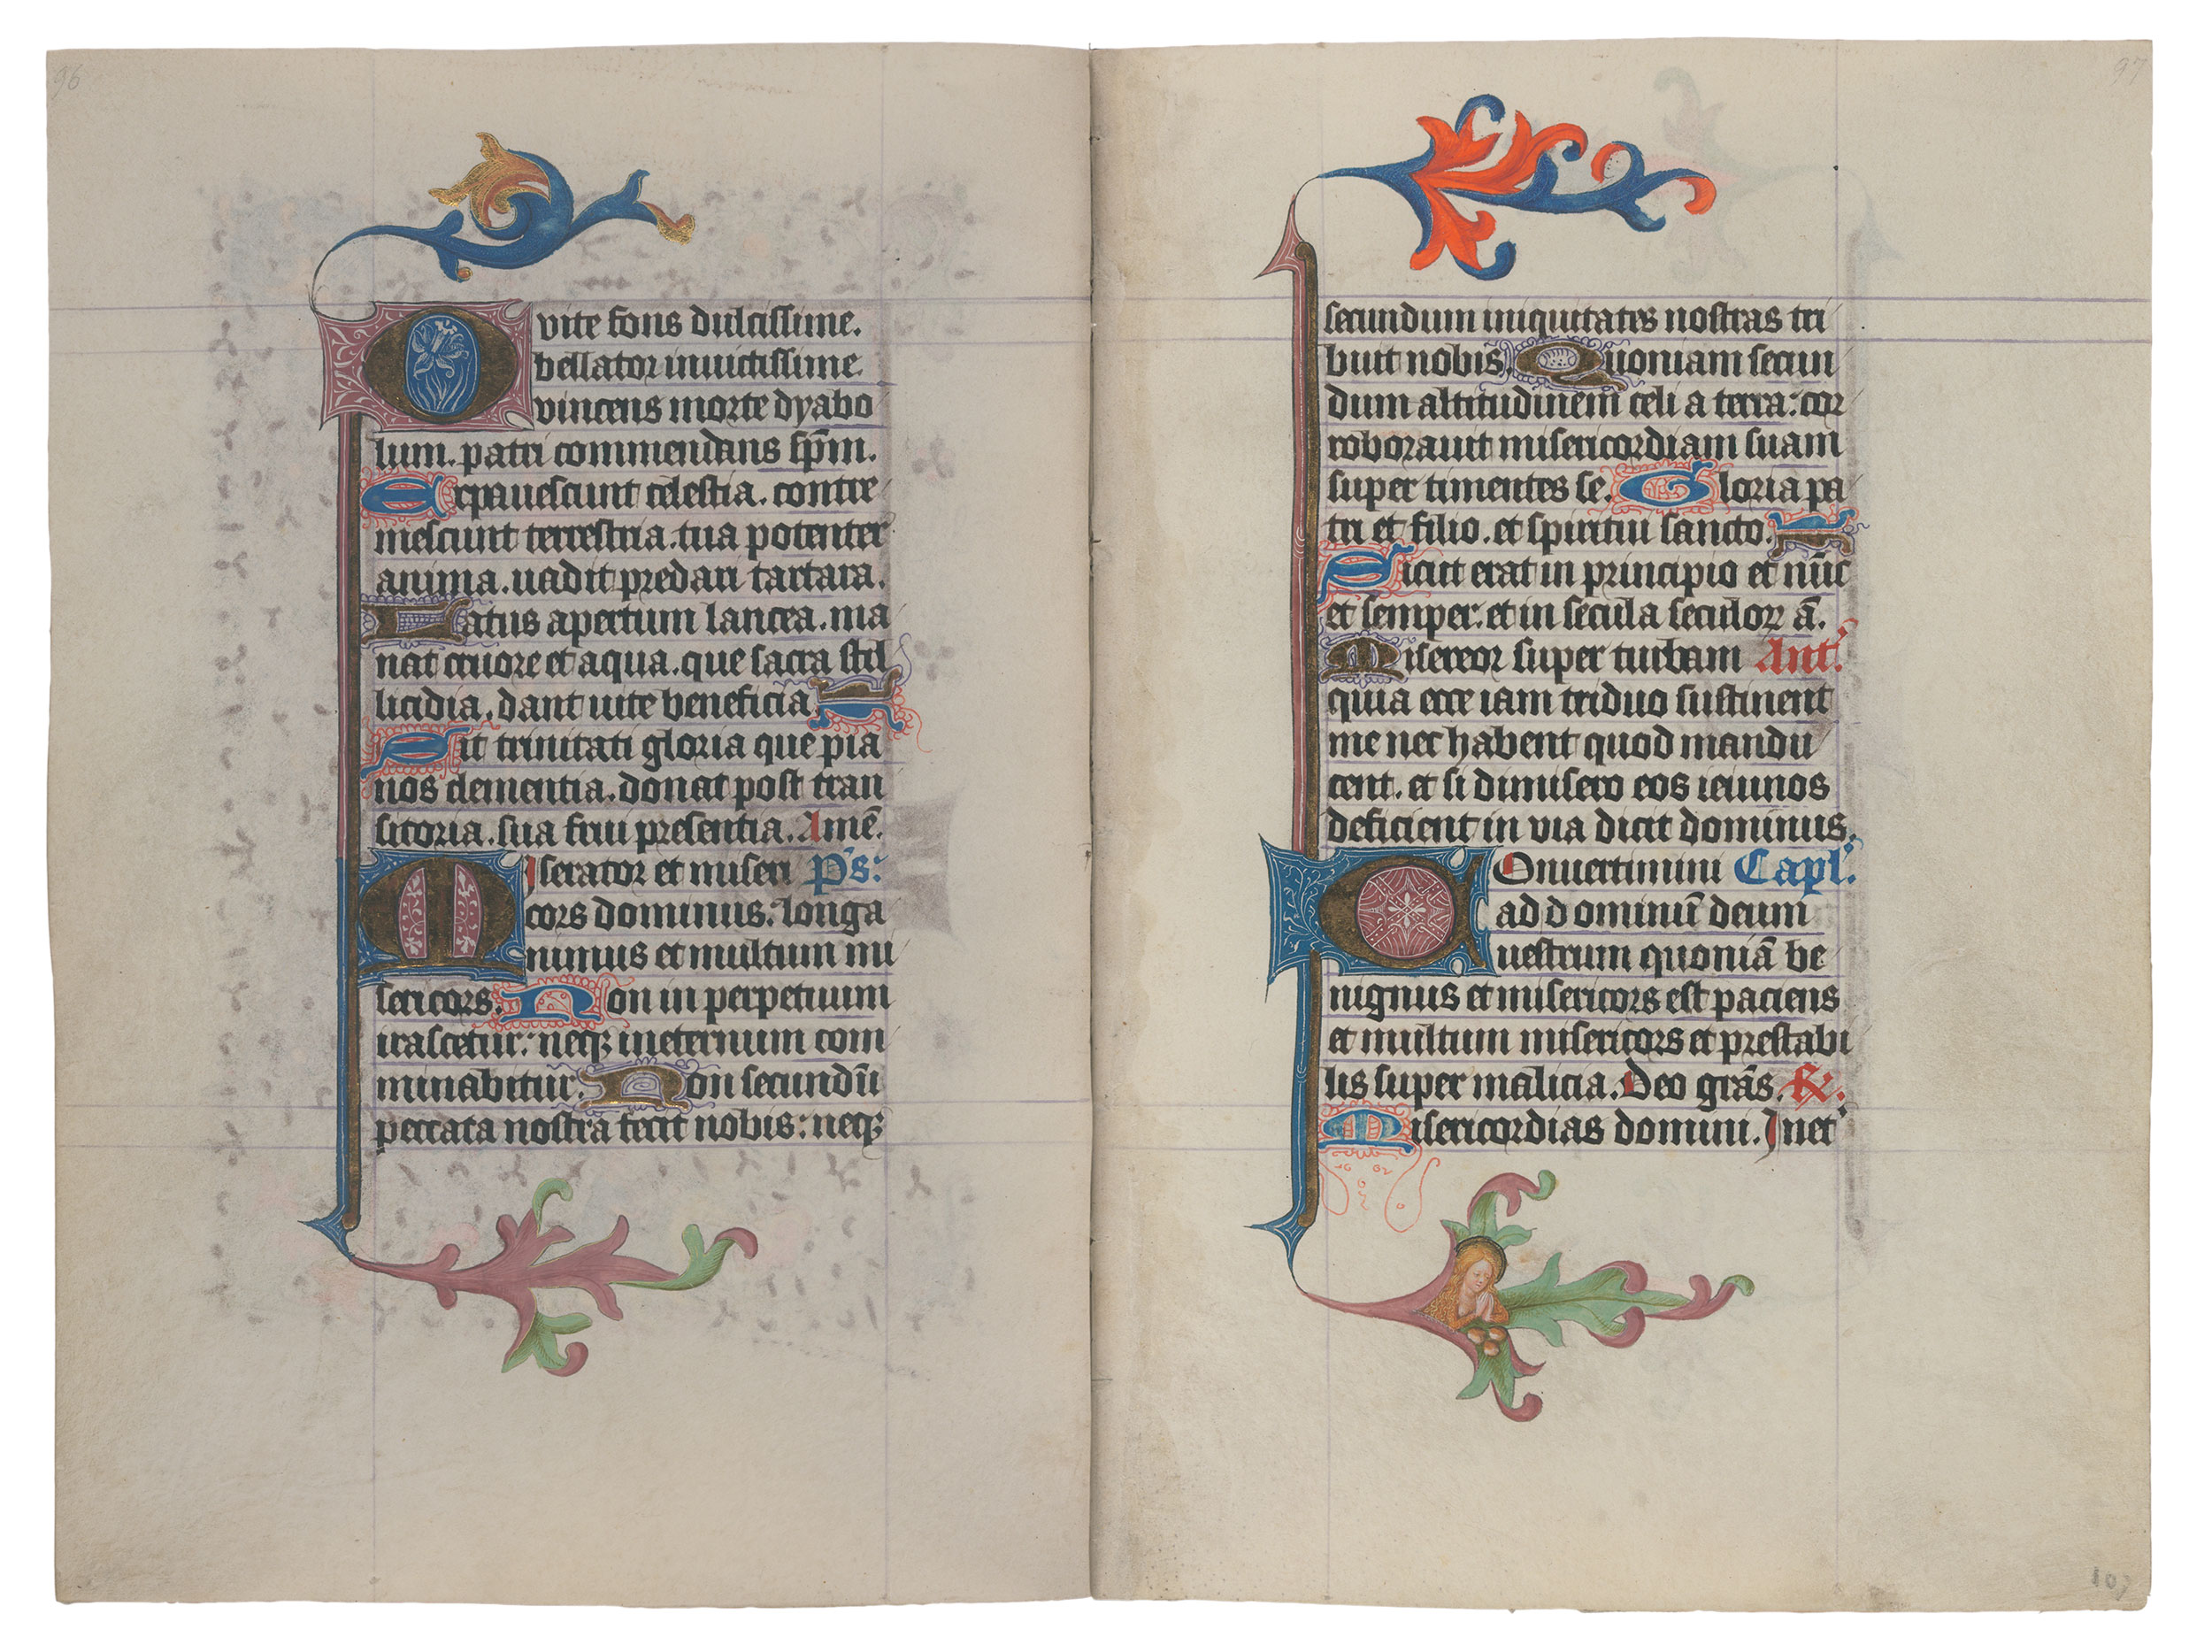 96
O vite fons dulcissime.
bellator inuictissime
vincens morte dyabo
lum. patri commendans sp̄m.
Expauescunt celestia. contre
mescunt terrestria. tua potenter
anima. uadit predari tartara.
Latus apertum lancea. ma
nat cruore et aqua. que sacra stil
licidia. dant uite beneficia.
Sit trinitati gloria que pia
nos clementia. donat post tran
sitoria. sua frui presentia. Amē.
Miserator et miseri Ps:
cors dominus. longa
nimus et multum mi
sericors. Non in perpetuum
irascetur: neqꝫ ineternum com
minabitur. Non secundū
peccata nostra fecit nobis: neqꝫ
97
secundum iniquitates nostras tri
buit nobis. Quoniam secun
dum altitudinem celi a terra: cor
roborauit misericordiam suam
super timentes se. Gloria pa
tri et filio. et spiritui sancto.
Sicut erat in principio et nūc
et semper: et in secula seculoꝝ ā.
Misereor super turbam Ant.
quia ecce iam triduo sustinent
me nec habent quod mandu
cent. et si dimisero eos ieiunos
deficient in via dicit dominus.
Conuertimini Capl.
ad dominū deum
uestrum quoniā be
nignus et misericors est paciens
et multum misericors et prestabi
lis super malicia. Deo grās. ℟.
Misericordias domini. Inet
107